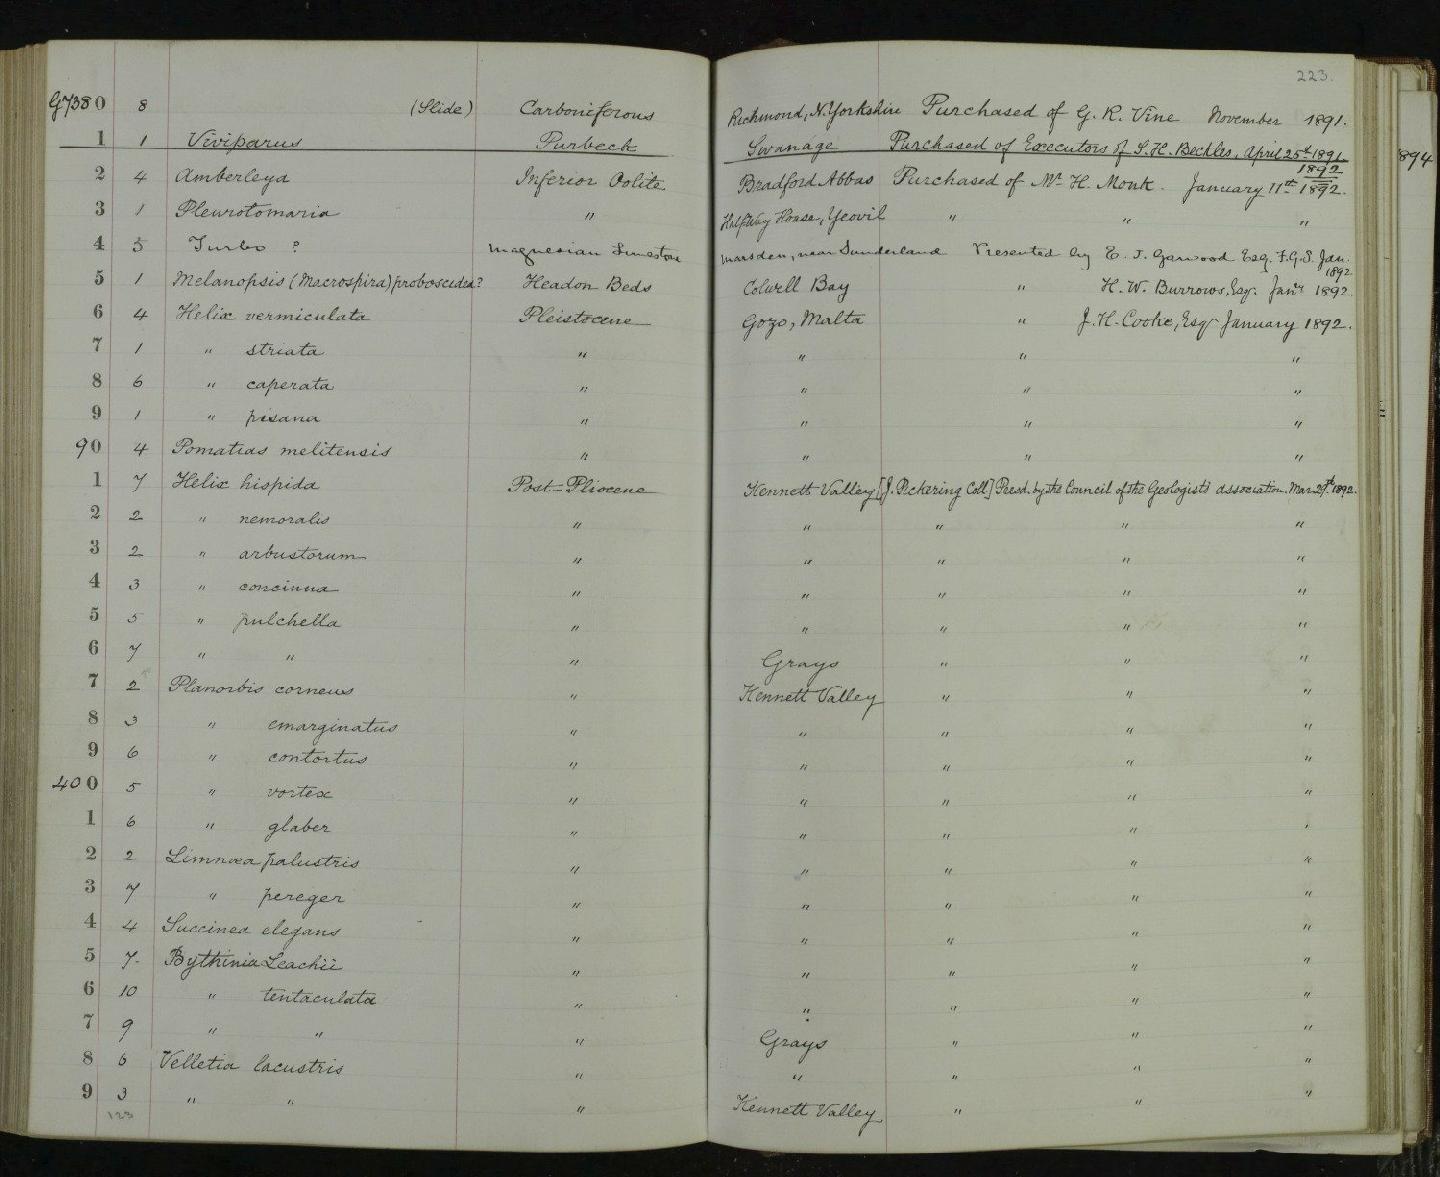 223.
G7380 8 (Slide) Carboniferous Richmond, N. Yorkshire Purchased of G. R. Vine November 1891.
1 1 Viviparus Purbeck Swanage Purchased of Executors of S. H. Beckles, April 25th 1891
1892
2 4 Amberleya Inferior Oolite Bradford Abbas Purchased of Mr H. Monk. January 11th 1892.
3 1 Pleurotomaria " Halfway House, Yeovil " " "
4 5 Turbo ? Magnesian Limestone Marsden, near Sunderland Presented by E. J. Garwood Esq. F.G.S. Jan. 1892
5 1 Melanopsis (Macrospira) proboscidea? Headon Beds Colwell Bay " H. W. Burrows, Esq. Jany 1892.
6 4 Helix vermiculata Pleistocene Gozo, Malta " J. H. Cooke, Esq January 1892.
7 1 " striata " " " "
8 6 " caperata " " " "
9 1 " pisana " " " "
90 4 Pomatias melitensis " " " "
1 7 Helix hispida Post-Pliocene Kennett Valley [J. Pickering Coll] Presd. by the Council of the Geologists association, Mar. 29th 1892.
2 2 " nemoralis " " " " "
3 2 " arbustorum " " " " "
4 3 " concinna " " " " "
5 5 " pulchella " " " " "
6 7 " " " Grays " " "
7 2 Planorbis corneus " Kennett Valley " " "
8 3 " emarginatus " " " " "
9 6 " contortus " " " " "
400 5 " vortex " " " " "
1 6 " glaber " " " " "
2 2 Limnæa palustris " " " " "
3 7 " pereger " " " " "
4 4 Succinea elegans " " " " "
5 7. Bythinia Leachii " " " " "
6 10 " tentaculata " " " " "
7 9 " " " Grays " " "
8 6 Velletia lacustris " " " " "
9 3 " " " Kennett Valley " " "
123
894